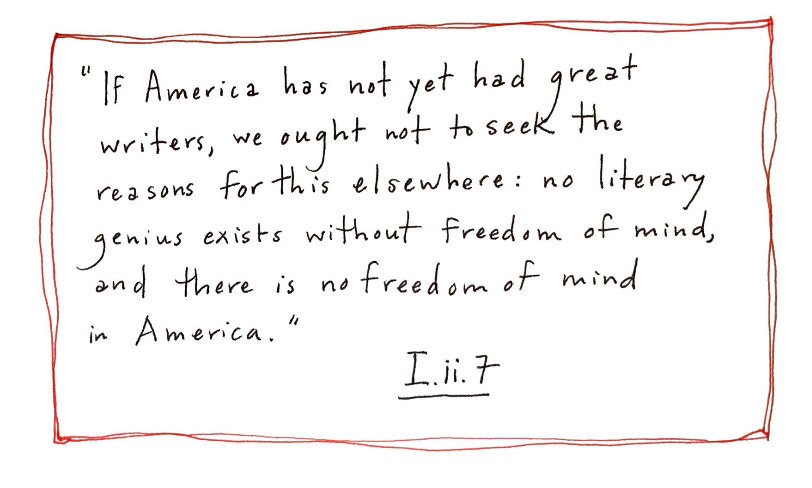 "If America has not yet had great
writers, we ought not to seek the
reasons for this elsewhere: no literary
genius exists without freedom of mind,
and there is no freedom of mind
in America."
I.ii.7